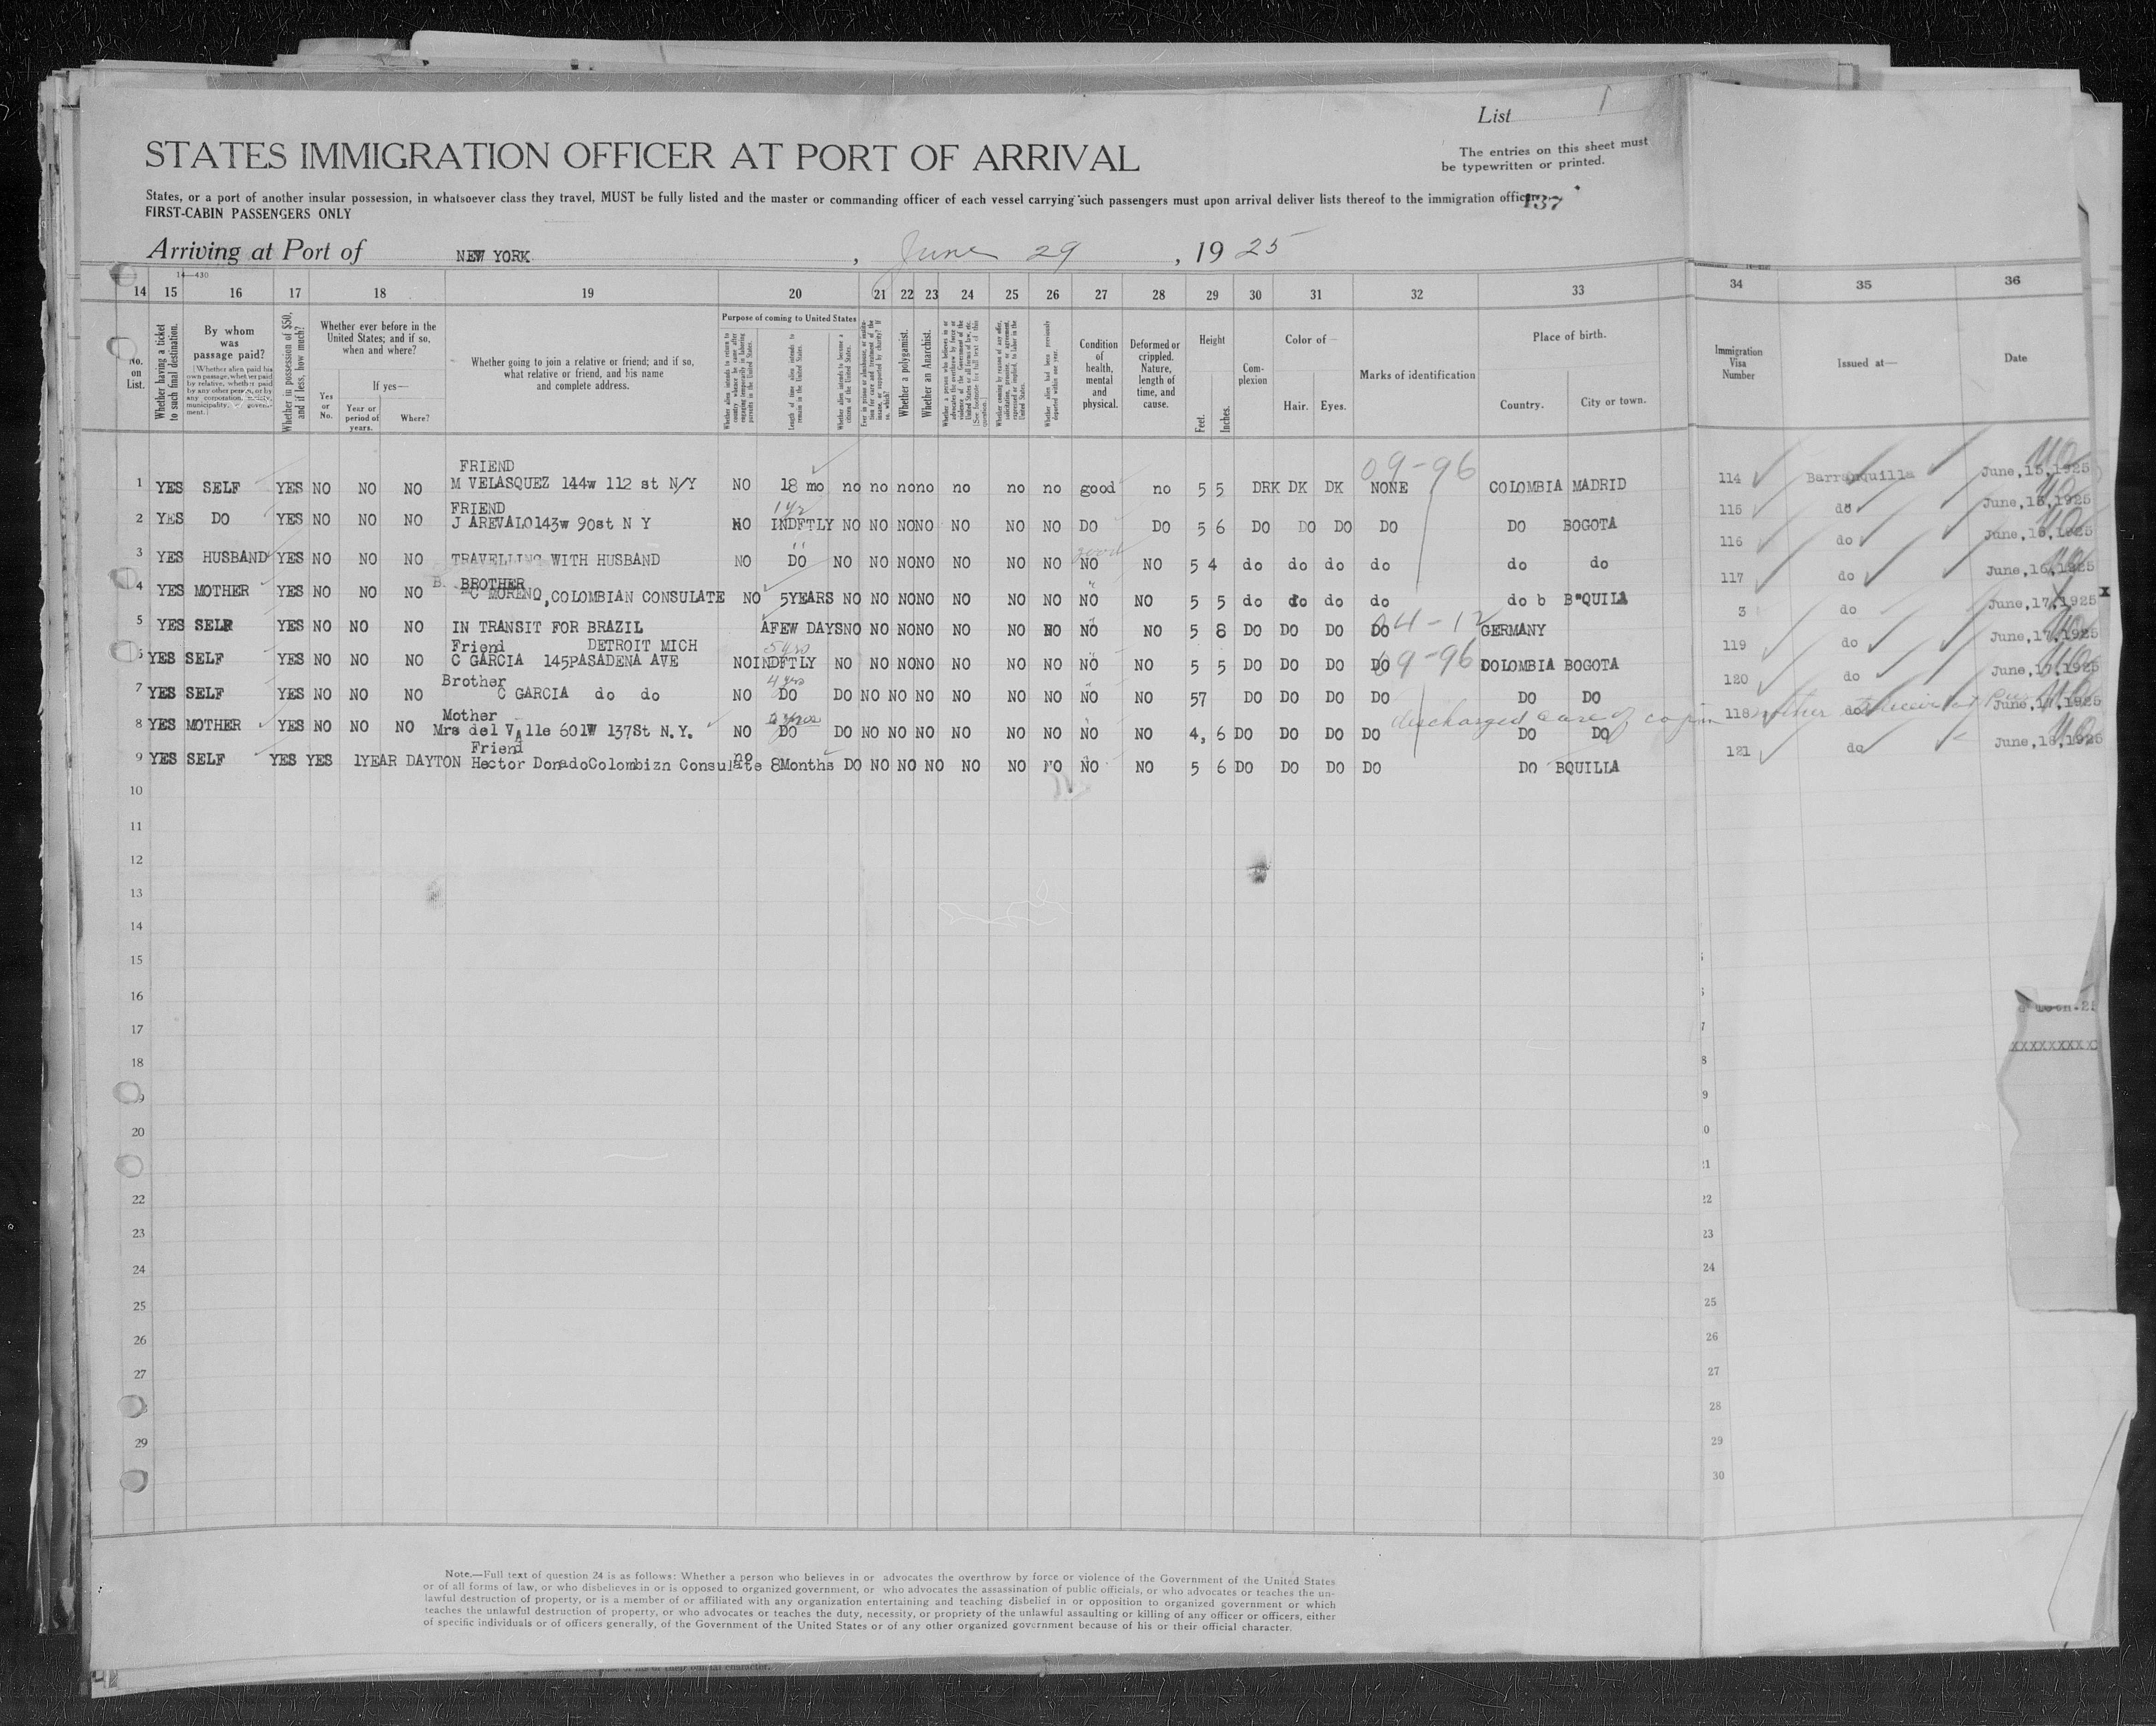 List 1
The entries on this sheet must
be typewritten or printed.
STATES IMMIGRATION OFFICER AT PORT OF ARRIVAL
States, or a port of another insular possession, in whatsoever class they travel, MUST be fully listed and the master or commanding officer of each vessel carrying such passengers must upon arrival deliver lists thereof to the immigration officer
137
FIRST-CABIN PASSENGERS ONLY
Arriving at Port of NEW YORK, June 29, 1925
14—430
14 15 16 17 18 19 20 21 22 23 24 25 26 27 28 29 30 31 32 33 34 35 36
No. on List.
Whether having a ticket to such final destination.
By whom was passage paid?
Whether in possession of $50, and if less, how much?
Whether ever before in the United States; and if so, when and where?
Yes or No.
If yes—
Year or period of years.
Where?
Whether going to join a relative or friend; and if so, what relative or friend, and his name and complete address.
Purpose of coming to United States
Length of time alien intends to remain in the United States.
Whether a polygamist.
Whether an Anarchist.
Condition of health, mental and physical.
Deformed or crippled. Nature, length of time, and cause.
Height
Feet. Inches.
Complexion
Color of—
Hair. Eyes.
Marks of identification
Place of birth.
Country. City or town.
Immigration Visa Number
Issued at—
Date
FRIEND 09-96
1 YES SELF YES NO NO NO M VELASQUEZ 144w 112 st N/Y NO 18 mo no no no no no no no good no 5 5 DRK DK DK NONE COLOMBIA MADRID 114 Barranquilla June,15,1925
FRIEND 1yr
2 YES DO YES NO NO NO J AREVALO 143w 90st N Y NO INDFTLY NO NO NO NO NO NO NO DO DO 5 6 DO DO DO DO DO BOGOTA 115 do June,15,1925
good
3 YES HUSBAND YES NO NO NO TRAVELLING WITH HUSBAND NO DO NO NO NO NO NO NO NO NO NO 5 4 do do do do do do 116 do June,15,1925
BROTHER
4 YES MOTHER YES NO NO NO C MORENO, COLOMBIAN CONSULATE NO 5YEARS NO NO NO NO NO NO NO NO NO 5 5 do do do do do b B"QUILA 117 do June,16,1925
5 YES SELF YES NO NO NO IN TRANSIT FOR BRAZIL AFEW DAYS NO NO NO NO NO NO NO NO NO 5 8 DO DO DO DO 04-12 GERMANY 3 do June,17,1925
Friend DETROIT MICH 5yrs
6 YES SELF YES NO NO NO C GARCIA 145PASADENA AVE NO INDFTLY NO NO NO NO NO NO NO NO NO 5 5 DO DO DO DO 09-96 COLOMBIA BOGOTA 119 do June,17,1925
Brother 4 yrs
7 YES SELF YES NO NO NO C GARCIA do do NO DO DO NO NO NO NO NO NO NO NO 57 DO DO DO DO DO DO 120 do
Mother discharged care of
8 YES MOTHER YES NO NO NO Mrs del VAlle 601W 137St N.Y. NO DO DO NO NO NO NO NO NO NO NO 4, 6 DO DO DO DO DO DO 118 do June,17,1925
Friend
9 YES SELF YES YES 1YEAR DAYTON Hector DonadoColombizn Consulate no 8Months DO NO NO NO NO NO NO NO NO 5 6 DO DO DO DO DO BQUILLA 121 do June,18,1925
10
11
12
13
14
15
16
17
18
9
20
22
23
24
25
26
27
29
8
9
22
23
24
25
26
27
28
29
30
XXXXXXXXX
Note.—Full text of question 24 is as follows: Whether a person who believes in or advocates the overthrow by force or violence of the Government of the United States
or of all forms of law, or who disbelieves in or is opposed to organized government, or who advocates the assassination of public officials, or who advocates or teaches the un-
lawful destruction of property, or is a member of or affiliated with any organization entertaining and teaching disbelief in or opposition to organized government or which
teaches the unlawful destruction of property, or who advocates or teaches the duty, necessity, or propriety of the unlawful assaulting or killing of any officer or officers, either
of specific individuals or of officers generally, of the Government of the United States or of any other organized government because of his or their official character.